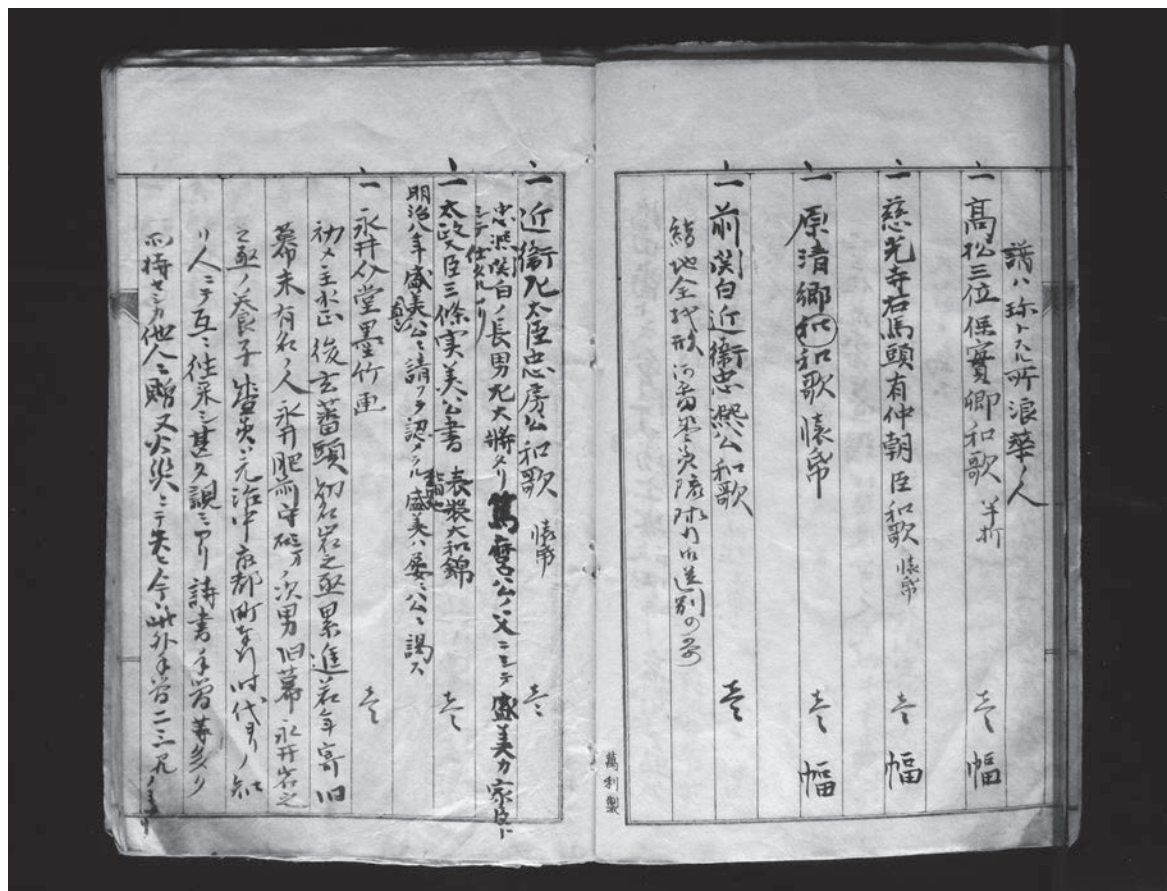 譜ハ珍トスル所浪華ノ人
一 高松三位保實卿和歌 半折 壱幅
一 慈光寺右馬頭有仲朝臣和歌 懐帋 壱幅
一 原清卿和歌懐帋 壱幅
一 前関白近衞忠熈公和歌 壱
萬利製
一 近衞左大臣忠房公和歌 懐帋 壱
忠熈関白ノ長男左大将タリ篤麿公ノ父ニシテ盛美カ家臣ト
シテ仕タルナリ
一 太政大臣三條実美公書 表装大和錦 壱
明治八年盛美公ニ請フテ認メラル盛美ハ屡公ニ謁ス
一 永井介堂墨竹画 壱
初メ主水正後玄蕃頭初名岩之丞累進若年寄旧
幕府末有名ノ人永井肥前守ノ次男旧幕永井岩之
之丞ノ養子盛美ハ元治中京都町奉行時代ヨリノ知
リ人ニテ互ニ往来シ甚タ親ミアリ詩書手簡等多ク
所持セシカ他人ニ贈又火災ニテ失セ今ハ此外手簡二三尺ノミナリ